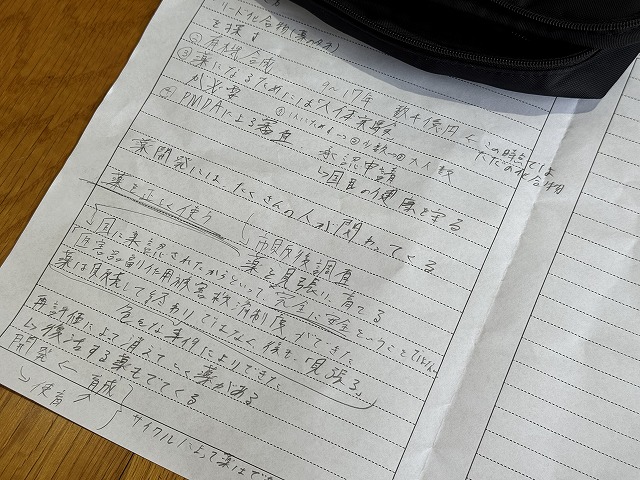 リード化合物(薬のタネ)
を探す
② 有機合成 9~17年 数千億円 ← この時点では
③ 薬になるためには人体実験 ただの化合物
が必要 ①いいかも→②少数→③大人数
④ PMDAによる審査 承認申請
↳国民の健康を守る
薬開発にはたくさんの人が関わってくる
薬を正しく使う 市販後調査
↳国に承認されたからといって 薬を見張り、育てる
完全に安全ということではない
「医薬品副作用被害救済制度」ができた
薬は販売して終わりではなく、後も「見張る」
色々な事件によりできた
再評価によって消えていく薬がある
↳復活する薬もでてくる
開発 ← 育成
↳使育 ↗ サイクルによって薬はでき